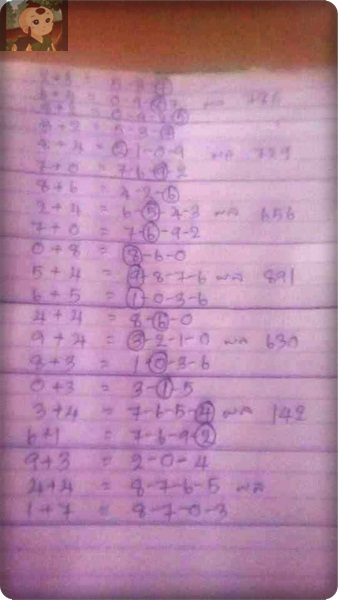 8+4 = 0-1-0-9 ผล 729
7+0 = 7-6-9-2
8+6 = 4-2-6
2+4 = 6-5-4-3 ผล 656
7+0 = 7-6-9-2
0+8 = 8-6-0
5+4 = 9-8-7-6 ผล 891
6+5 = 1-0-3-6
4+4 = 8-6-0
9+4 = 3-2-1-0 ผล 630
8+3 = 1-0-3-6
0+3 = 3-1-5
3+4 = 7-6-5-4 ผล 142
6+1 = 7-6-9-2
9+3 = 2-0-4
4+4 = 8-7-6-5 ผล
1+7 = 8-7-0-3